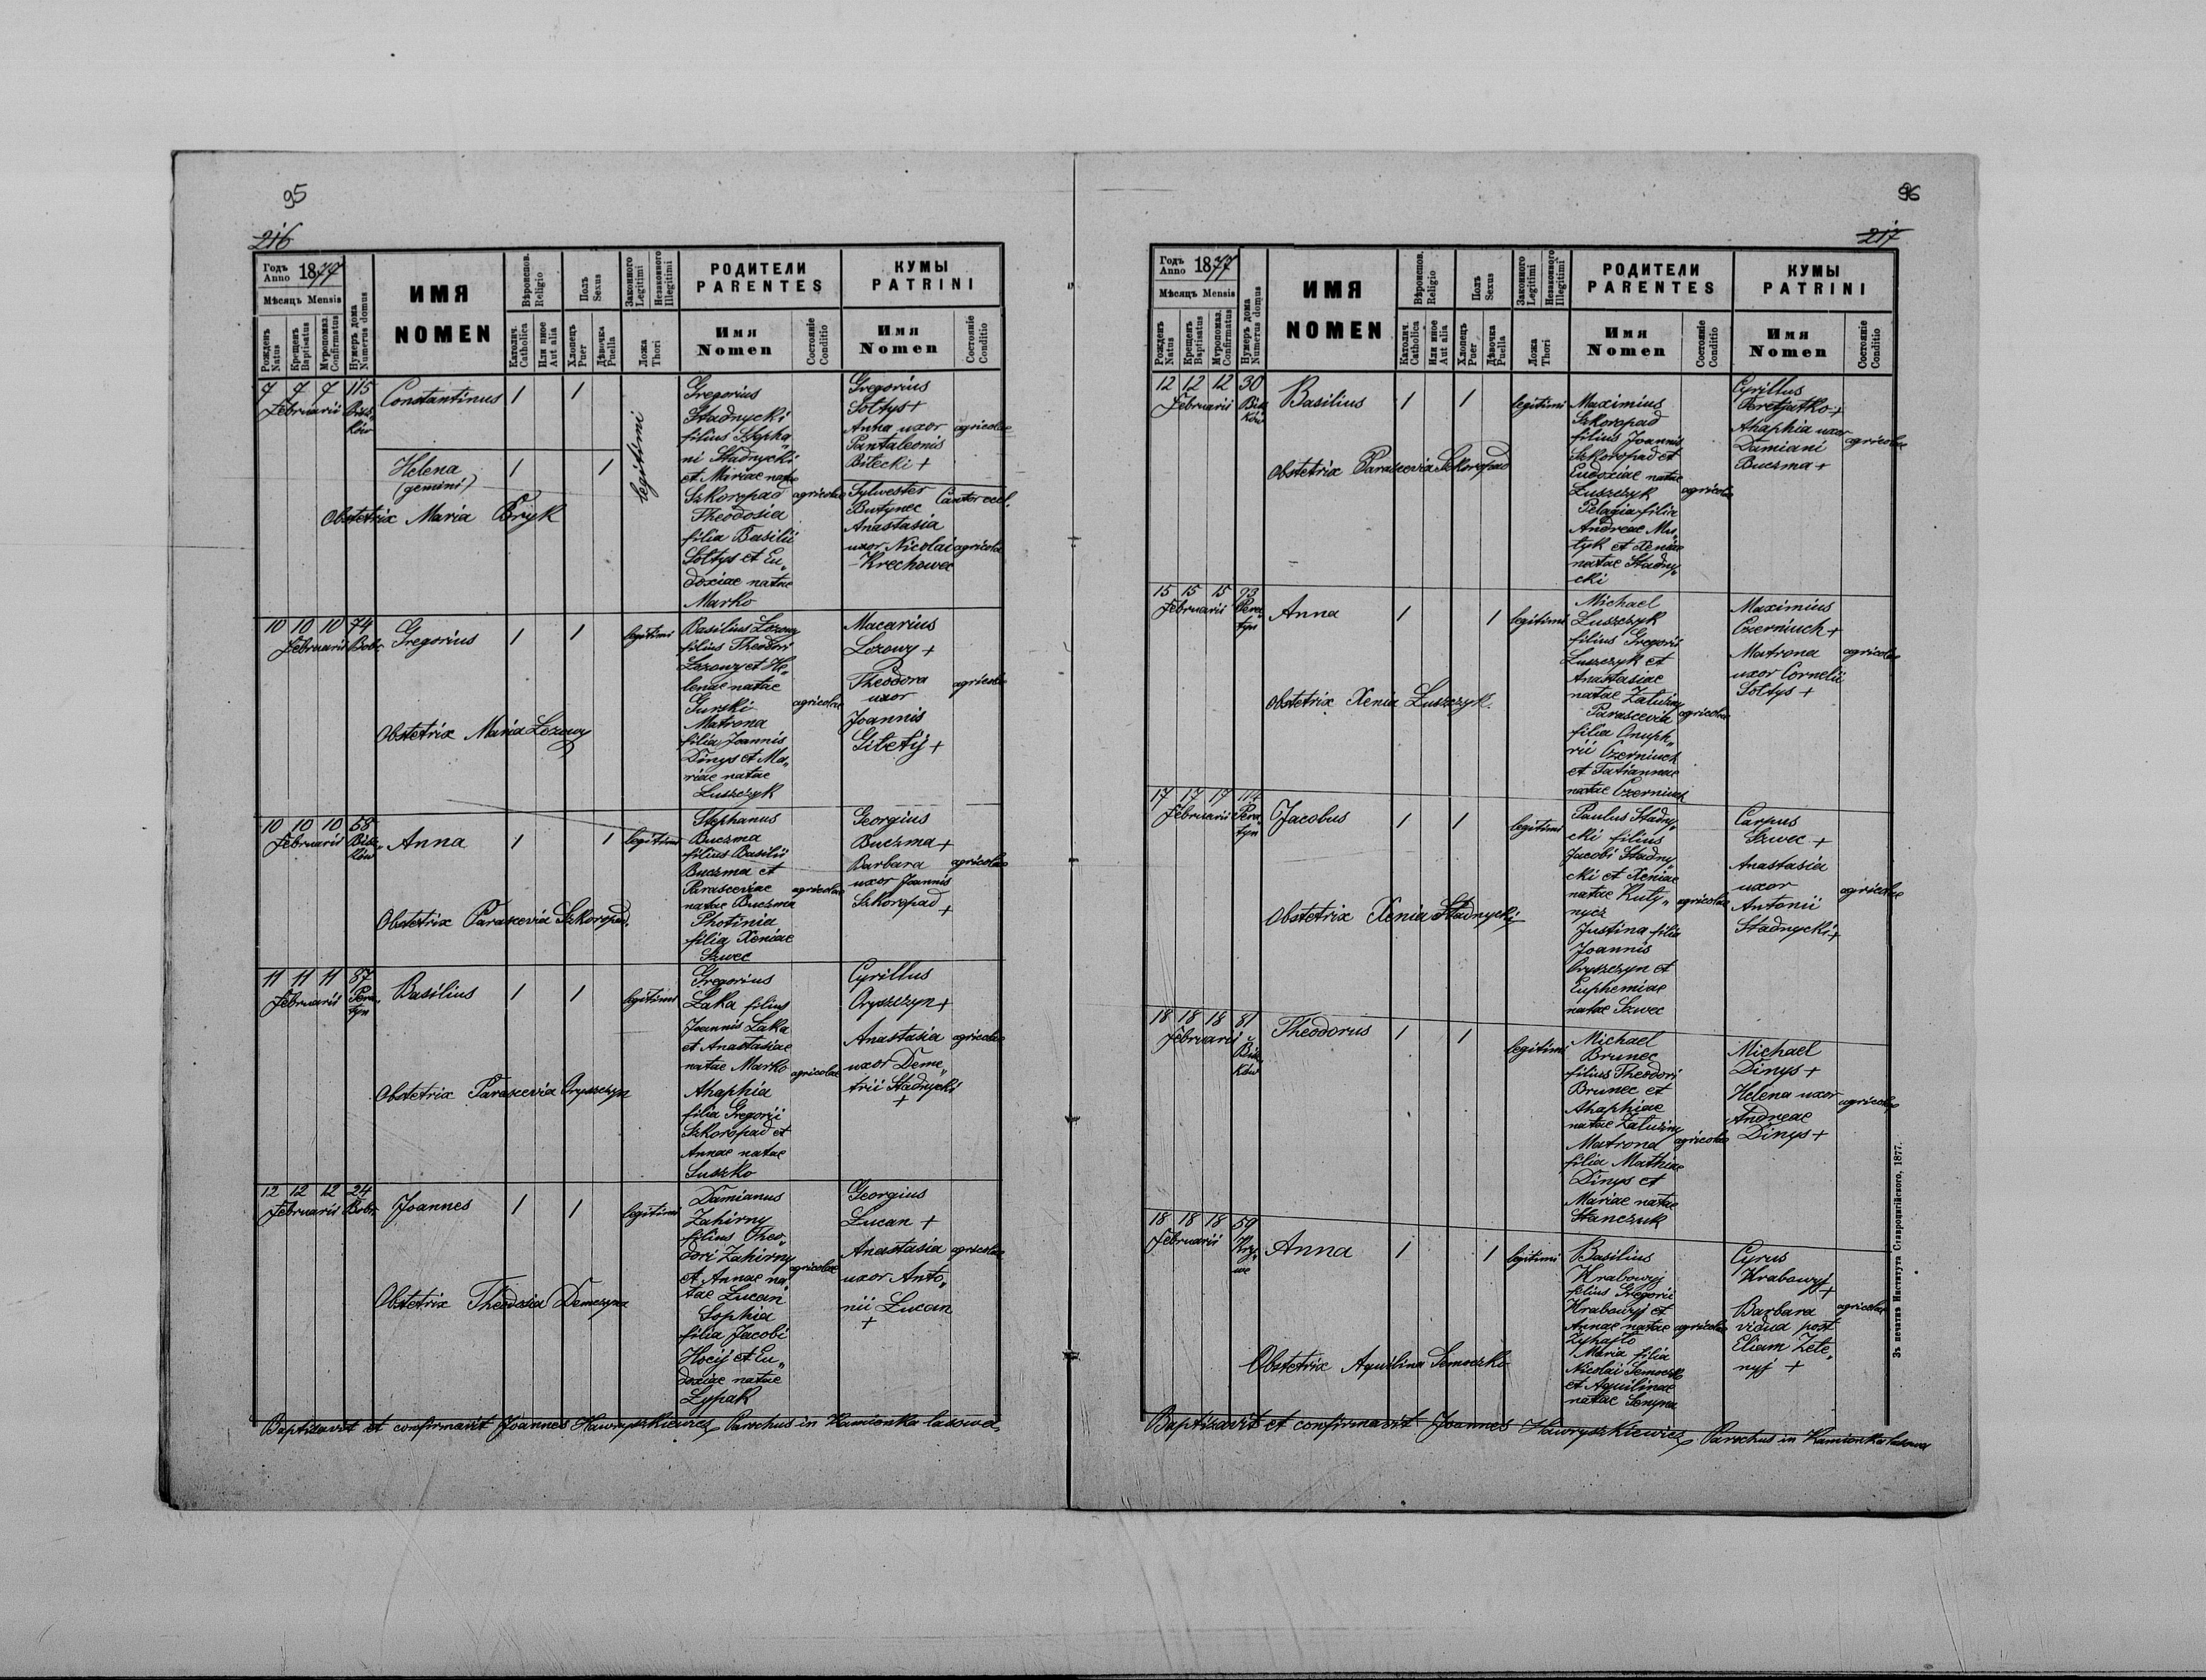 95
216
Годъ Anno 1877
Мѣсяцъ Mensis
Рожденъ Natus
Крещенъ Baptisatus
Мѵропомаз. Confirmatus
Нумеръ дома Numerus domus
ИМЯ
NOMEN
Вѣроиспов. Religio
Католич. Catholica
Или иное Aut alia
Полъ Sexus
Хлопецъ Puer
Дѣвочка Puella
Законного Legitimi
Незаконного Illegitimi
Ложа Thori
РОДИТЕЛИ
PARENTES
Имя
Nomen
Состояніе Conditio
КУМЫ
PATRINI
Имя
Nomen
Состояніе Conditio
7 7 7 115
Februarii
Constantinus 1 1
Helena 1 1
(gemini)
legitimi
Obstetrix Maria Bryk
Gregorius
Stadnycki
filius Stepha„
ni Stadnycki
et Mariae natae
Szkoropad agricolae
Theodosia
filia Basilii
Soltys et Eu„
doxiae natae
Marko
Gregorius
Soltys +
Anna uxor agricolae
Pantaleonis
Bilecki +
Sylwester Cantor eccl.
Butynec
Anastasia
uxor Nicolai agricolae
Krechowec
10 10 10 74
Februarii Bobr.
Gregorius 1 1 legitimi
Obstetrix Maria Lozowy
Basilius Lozowy
filius Theodori
Lozowy et He„
lenae natae
Gurski agricolae
Matrona
filia Joannis
Dinys et Ma„
riae natae
Luszczyk
Macarius
Lozowy +
Theodora agricolae
uxor
Joannis
Gilety +
10 10 10 58
Februarii Bisz„
ków
Anna 1 1 legitimi
Obstetrix Parascevia Szkoropad.
Stephanus
Buczma
filius Basilii
Buczma et
Parasceviae agricolae
natae Buczma
Photinia
filia Xeniae
Szwec
Georgius
Buczma +
Barbara agricolae
uxor Joannis
Szkoropad
+
11 11 11 87
Februarii Pera„
tyn
Basilius 1 1 legitimi
Obstetrix Parascevia Oryszczyn
Gregorius
Laka filius
Joannis Laka
et Anastasiae
natae Marko agricolae
Ahaphia
filia Gregorii
Szkoropad et
Annae natae
Suszko
Cyrillus
Oryszczyn +
Anastasia agricolae
uxor Deme„
trii Stadnycki
+
12 12 12 24
Februarii Bobr.
Joannes 1 1 legitimi
Obstetrix Theodosia Demczyna
Damianus
Zahirny
filius Theo„
dori Zahirny
et Annae na„ agricolae
tae Lucan
Sophia
filia Jacobi
Hocij et Eu„
doxiae natae
Lypak
Georgius
Lucan +
Anastasia agricolae
uxor Anto„
nii Lucan
+
Baptisavit et confirmavit Joannes Hawryszkiewicz Parochus in Kamionka lasowa.
96
217
Годъ Anno 1877
Мѣсяцъ Mensis
Рожденъ Natus
Крещенъ Baptisatus
Мѵропомаз. Confirmatus
Нумеръ дома Numerus domus
ИМЯ
NOMEN
Вѣроиспов. Religio
Католич. Catholica
Или иное Aut alia
Полъ Sexus
Хлопецъ Puer
Дѣвочка Puella
Законного Legitimi
Незаконного Illegitimi
Ложа Thori
РОДИТЕЛИ
PARENTES
Имя
Nomen
Состояніе Conditio
КУМЫ
PATRINI
Имя
Nomen
Состояніе Conditio
12 12 12 30
Februarii Bisz
ków
Basilius 1 1 legitimi
Obstetrix Parascevia Szkoropad
Maximius
Szkoropad
filius Joannis
Szkoropad et
Eudoxiae natae
Luszczyk agricolae
Pelagia filia
Andreae Mu„
lyk et Xeniae
natae Stadny„
cki
Cyrillus
Peretiatko +
Ahaphia uxor agricolae
Damiani
Buczma +
15 15 15 93
Februarii Pera„
tyn
Anna 1 1 legitimi
Obstetrix Xenia Luszczyk.
Michael
Luszczyk
filius Gregorii
Luszczyk et
Anastasiae
natae Zaluzny
Parascevia agricolae
filia Onuph„
rii Czerniuch
et Tatiannae
natae Czerniuch
Maximius
Czerniuch +
Matrona agricolae
uxor Cornelii
Soltys +
17 17 17 114
Februarii Pera„
tyn
Jacobus 1 1 legitimi
Obstetrix Xenia Stadnycki
Paulus Stadny„
cki filius
Jacobi Stadny„
cki et Xeniae
natae Kuty„ agricolae
nycz
Justina filia
Joannis
Oryszczyn et
Euphemiae
natae Szwec
Carpus
Szwec +
Anastasia
uxor agricolae
Antonii
Stadnycki +
18 18 18 81
Februarii Bisz„
ków
Theodorus 1 1 legitimi
Michael
Brunec
filius Theodori
Brunec et
Ahaphiae
natae Zaluzny
Matrona agricolae
filia Mathiae
Dinys et
Mariae natae
Stanczuk
Michael
Dinys +
Helena uxor agricolae
Andreae
Dinys +
18 18 18 59
Februarii Kry„
we
Anna 1 1 legitimi
Obstetrix Aquilina Semoczko
Basilius
Hrabowyj
filius Gregorii
Hrabowyj et
Annae natae agricolae
Maria filia
Nicolai Semoczko
et Aquilinae
natae Senyna
Cyrus
Hrabowyj
+
Barbara agricolae
vidua post
Eliam Zele„
nyj +
Baptizavit et confirmavit Joannes Hawryszkiewicz Parochus in Kamionka lasowa
Зъ печатнѣ Института Ставропигійского, 1877.